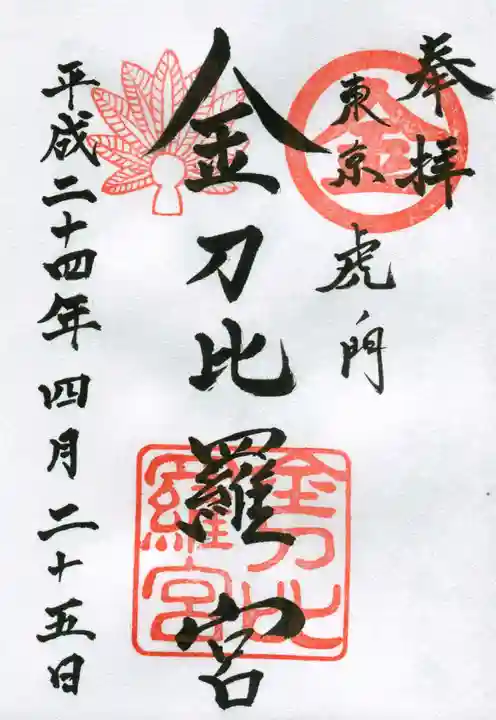 奉拝
東京
虎ノ門
金刀比羅宮
平成二十四年四月二十五日
金
金刀比
羅宮